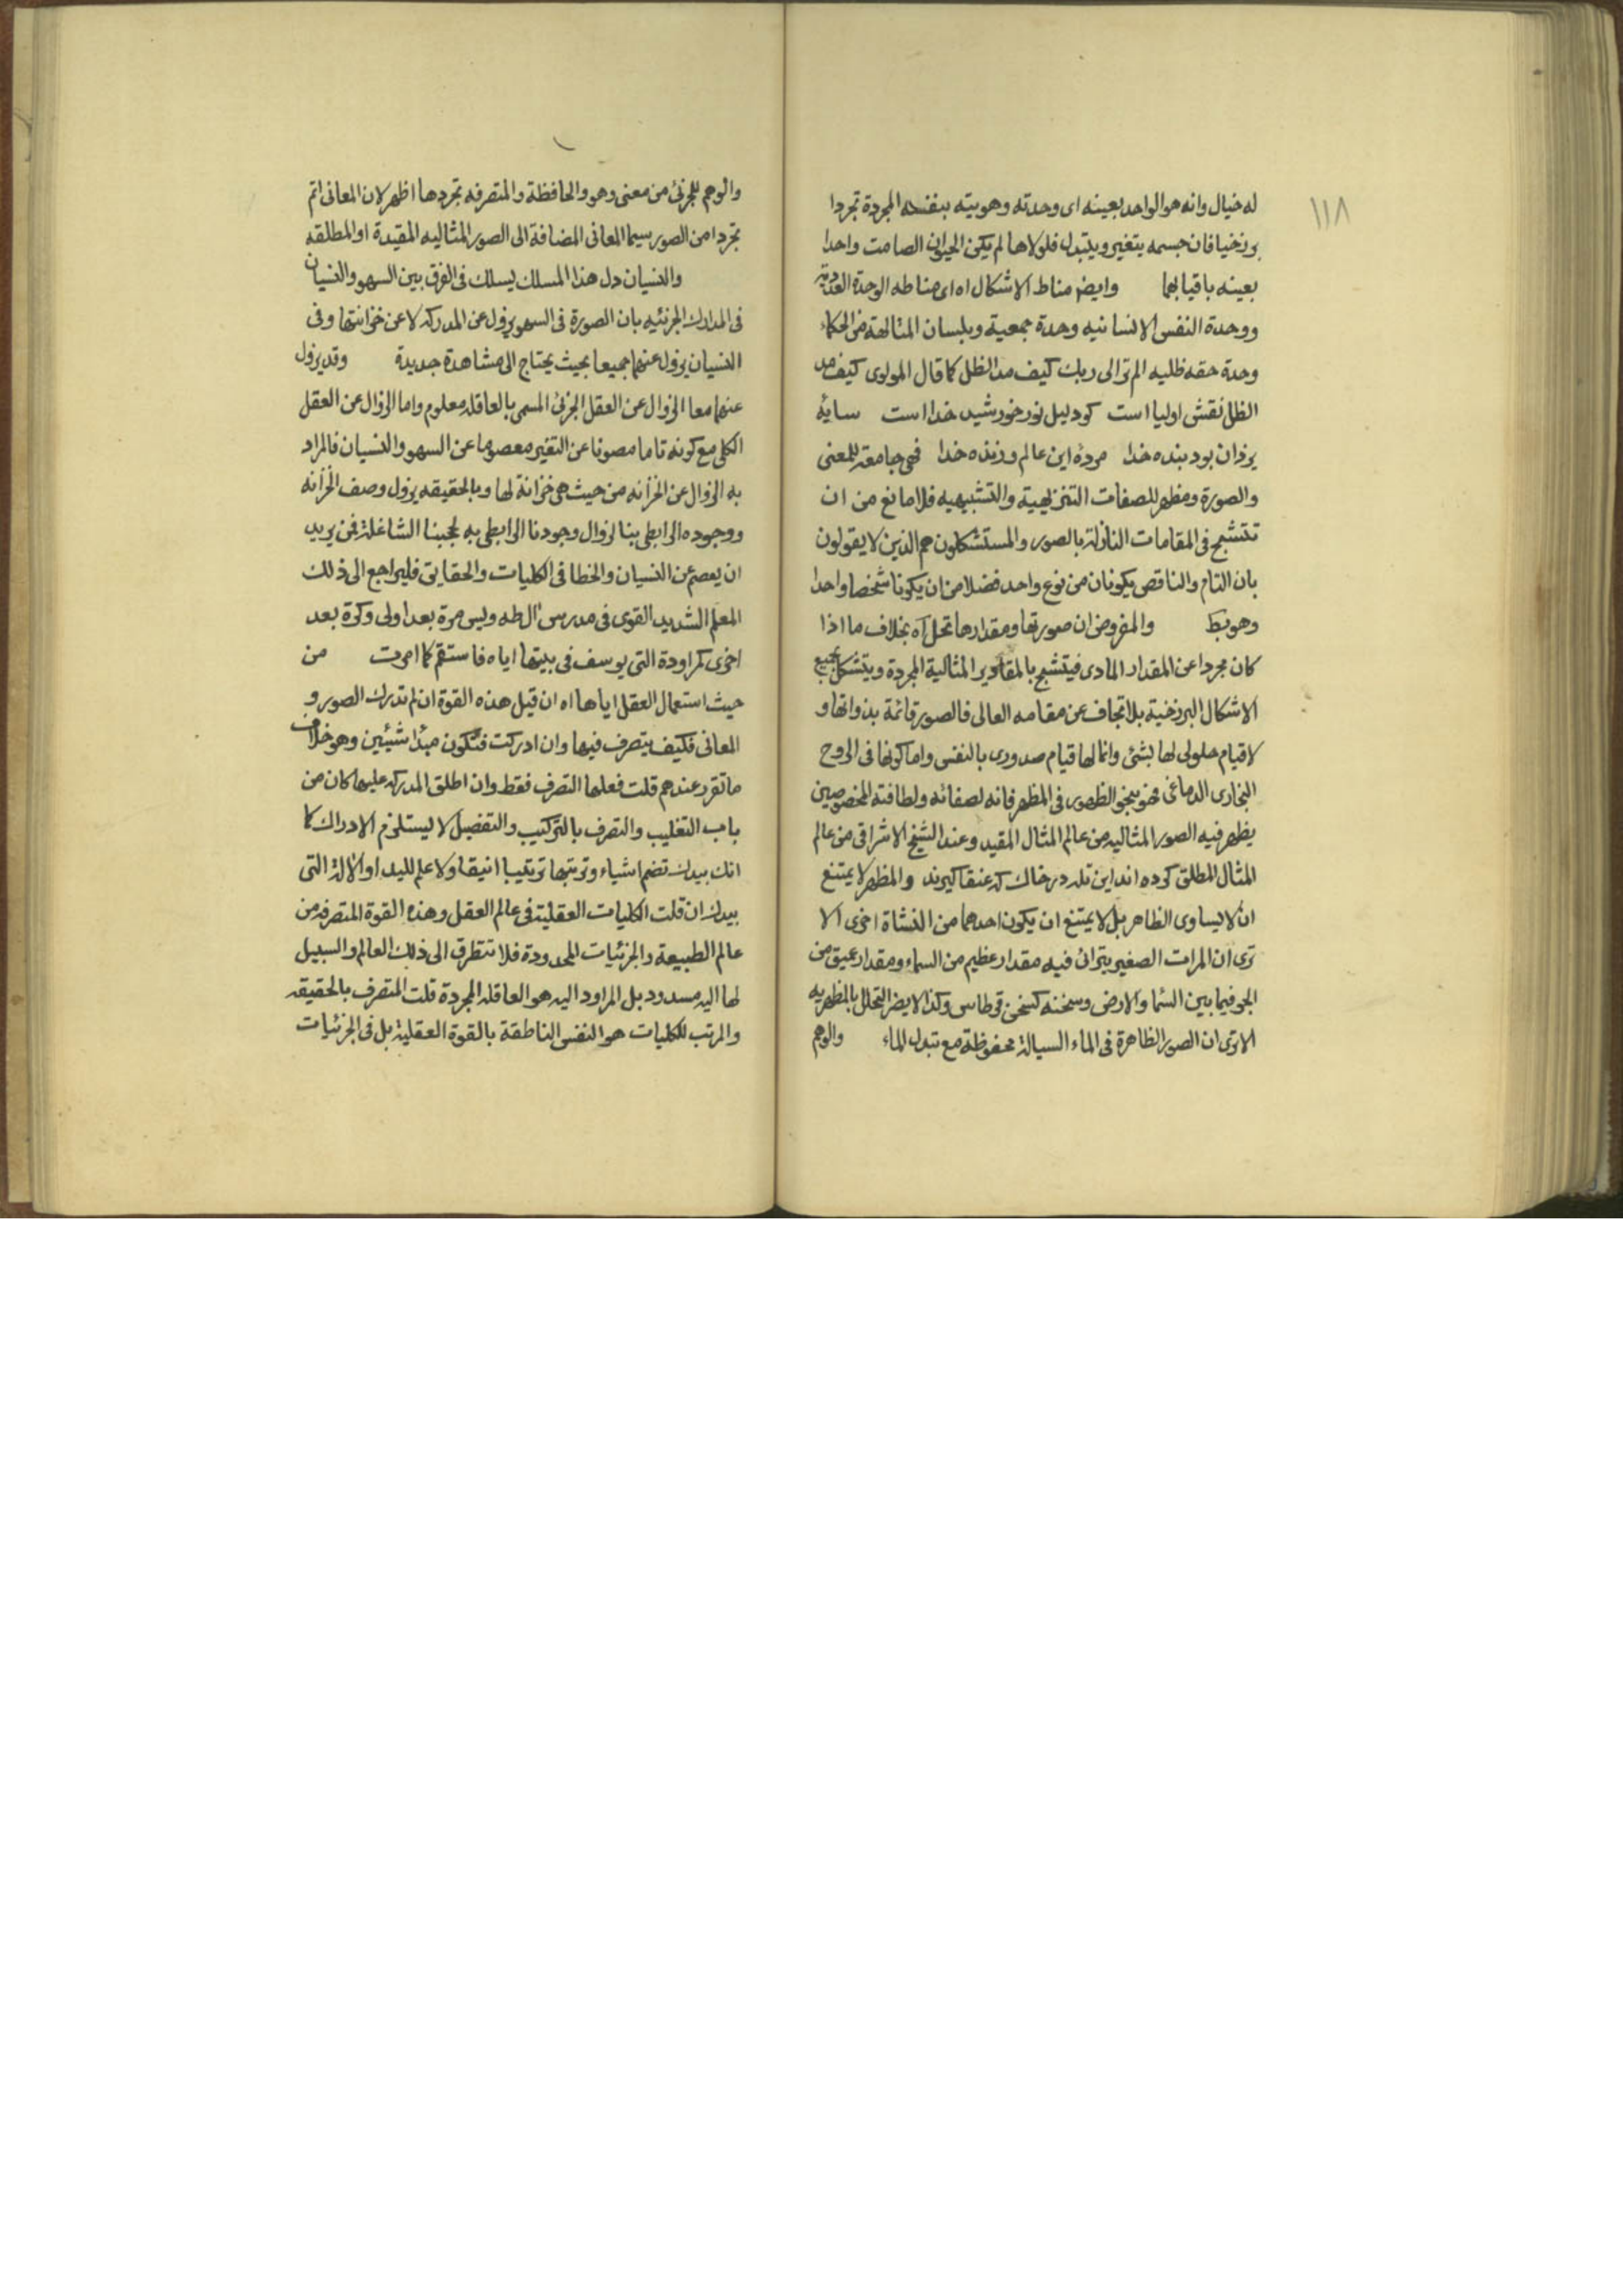 ١١٨
له خيال وانه هو الواحد بعينه اى وحدته وهويته بنفسه المجردة تجردا
برزخيا فان جسمه يتغير ويتبدل فلولاها لم يكن الحيوان الصامت واحدا
بعينه باقيا بها وايض مناط الاشكال اه اى مناطه الوحدة العددية
ووحدة النفس الانسانيه وحدة جمعية وبلسان المتالهة من الحكماء
وحدة حقه ظليه الم تر الى ربك كيف مد الظل كما قال المولوى كيف مد
الظل نقش اوليا است كو دليل نور خورشيد خدا است سايۀ
يزدان بود بنده خدا مردۀ اين عالم و زنده خدا فهى جامعة للمعنى
والصورة ومظهر للصفات التنزيهية والتشبيهيه فلا مانع من ان
تتشبح فى المقامات النازلة بالصور والمستشكلون هم الذين لا يقولون
بان التام والناقص يكونان من نوع واحد فضلا من ان يكونا شخصا واحدا
وهو بط والمفروض ان صورتها ومقدارها تحل اه بخلاف ما اذا
كان مجردا عن المقدار المادى فيتشبح بالمقادير المثالية المجردة ويتشكل بجميع
الاشكال البرزخية بلا تجاف عن مقامه العالى فالصور قائمة بذواتها و
لا قيام حلولى لها بشئ وانما لها قيام صدورى بالنفس واما كونها فى الروح
البخارى الدماغى فهو بنحو الظهور فى المظهر فانه لصفائه ولطافته المخصوصين
يظهر فيه الصور المثاليه من عالم المثال المقيد وعند الشيخ الاشراقى من عالم
المثال المطلق كرده اند اين تله در خاك كه عنقا گيرند والمظهر لا يمتنع
ان لا يساوى الظاهر بل لا يمتنع ان يكون احدهما من النشاة اخرى الا
ترى ان المرات الصغير يترائ فيه مقدار عظيم من السماء ومقدار عميق من
الجو فيما بين السما والارض وسخنه كسخن قرطاس وكذا لا يضر التحلل بالمظهريه
الا ترى ان الصور الظاهرة فى الماء السيالة محفوظة مع تبدل الماء والوهم
والوهم للجزئ من معنى وهو والحافظة والمتصرفه تجردها اظهر لان المعانى اتم
تجردا من الصور سيما المعانى المضافة الى الصور المثاليه المقيدة او المطلقه
والنسيان دل هذا المسلك يسلك فى الفرق بين السهو والنسيان
فى المدارك الجزئيه بان الصورة فى السهو يزول عن المدركه لا عن خزانتها وفى
النسيان يزول عنهما جميعا بحيث يحتاج الى مشاهدة جديدة وقد يزول
عنهما معا الزوال عن العقل الجزئ المسمى بالعاقله معلوم واما الزوال عن العقل
الكلى مع كونه تاما مصونا عن التغير معصوما عن السهو والنسيان فالمراد
به الزوال عن الخزانه من حيث هى خزانة لها وبالحقيقه يزول وصف الخزانه
ووجوده الرابطى بنا لزوال وجودنا الرابطى به لحجبنا الشاغلة فمن يريد
ان يعصم عن النسيان والخطا فى الكليات والحقايق فليراجع الى ذلك
المعلم الشديد القوى فى مدرس ال طه ويس مرة بعد اولى وكرة بعد
اخرى كمراودة التى يوسف فى بيتها اياه فاستقم كما امرت من
حيث استعمال العقل اياها اه ان قيل هذه القوة ان لم تدرك الصور و
المعانى فكيف يتصرف فيها وان ادركت فتكون مبدا شيئين وهو خلاف
ما تقرر عندهم قلت فعلها التصرف فقط وان اطلق المدركه عليها كان من
باب التغليب والتصرف بالتركيب والتفصيل لا يستلزم الادراك كما
انك بيدك تضم اشياء وترتبها ترتيبا انيقا ولا علم لليد او الآلة التى
بيدك ان قلت الكليات العقلية فى عالم العقل وهذه القوة المتصرفه من
عالم الطبيعة والجزئيات المحدودة فلا تتطرق الى ذلك العالم والسبيل
لها اليه مسدود بل المراود اليه هو العاقله المجردة قلت المتصرف بالحقيقه
والمرتب للكليات هو النفس الناطقة بالقوة العقلية بل فى الجزئيات